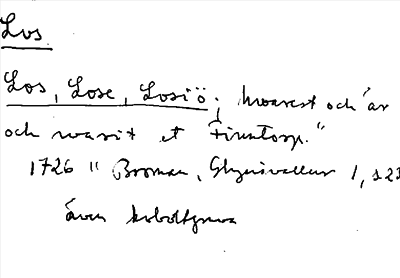 Los.
Los, Lose, Losiö; hwarest och "är
och warit et Finntorp."
1726 " Broman, Glysisvallur 1, s 23
även koboltgruva